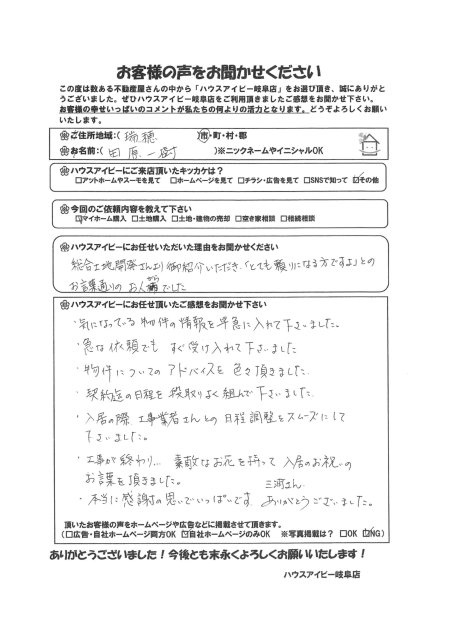 お客様の声をお聞かせください
この度は数ある不動産屋さんの中から「ハウスアイビー岐阜店」をお選び頂き、誠にありがと
うございました。ぜひハウスアイビー岐阜店をご利用頂きましたご感想をお聞かせ下さい。
お客様の幸せいっぱいのコメントが私たちの何よりの活力となります。どうぞよろしくお願い
いたします。
ご住所地域:( 瑞穂 )市・町・村・郡
お名前:( 田原一樹 )※ニックネームやイニシャルOK
ハウスアイビーにご来店頂いたキッカケは?
□アットホームやスーモを見て □ホームページを見て □チラシ・広告を見て □SNSで知って ☑その他
今回のご依頼内容を教えて下さい
☑マイホーム購入 □土地購入 □土地・建物の売却 □空き家相談 □相続相談
ハウスアイビーにお任せいただいた理由をお聞かせください
総合土地開発さんより御紹介いただき、「とても頼りになる方ですよ」との
お言葉通りのお人柄でした
ハウスアイビーにお任せ頂いたご感想をお聞かせ下さい
・気になっている物件の情報を早急に入れて下さいました。
・急な依頼でも すぐ受け入れて下さいました
・物件についてのアドバイスを色々頂きました。
・契約迄の日程を段取りよく組んで下さいました。
・入居の際 工事業者さんとの日程調整をスムーズにして
下さいました。
・工事が終わり... 素敵なお花を持って入居のお祝いの
お言葉を頂きました。 三河さん
・本当に感謝の思いでいっぱいです ありがとうございました。
頂いたお客様の声をホームページや広告などに掲載させて頂きます。
(□広告・自社ホームページ両方OK ☑自社ホームページのみOK ※写真掲載は? □OK ☑NG)
ありがとうございました!今後とも末永くよろしくお願いいたします!
ハウスアイビー岐阜店